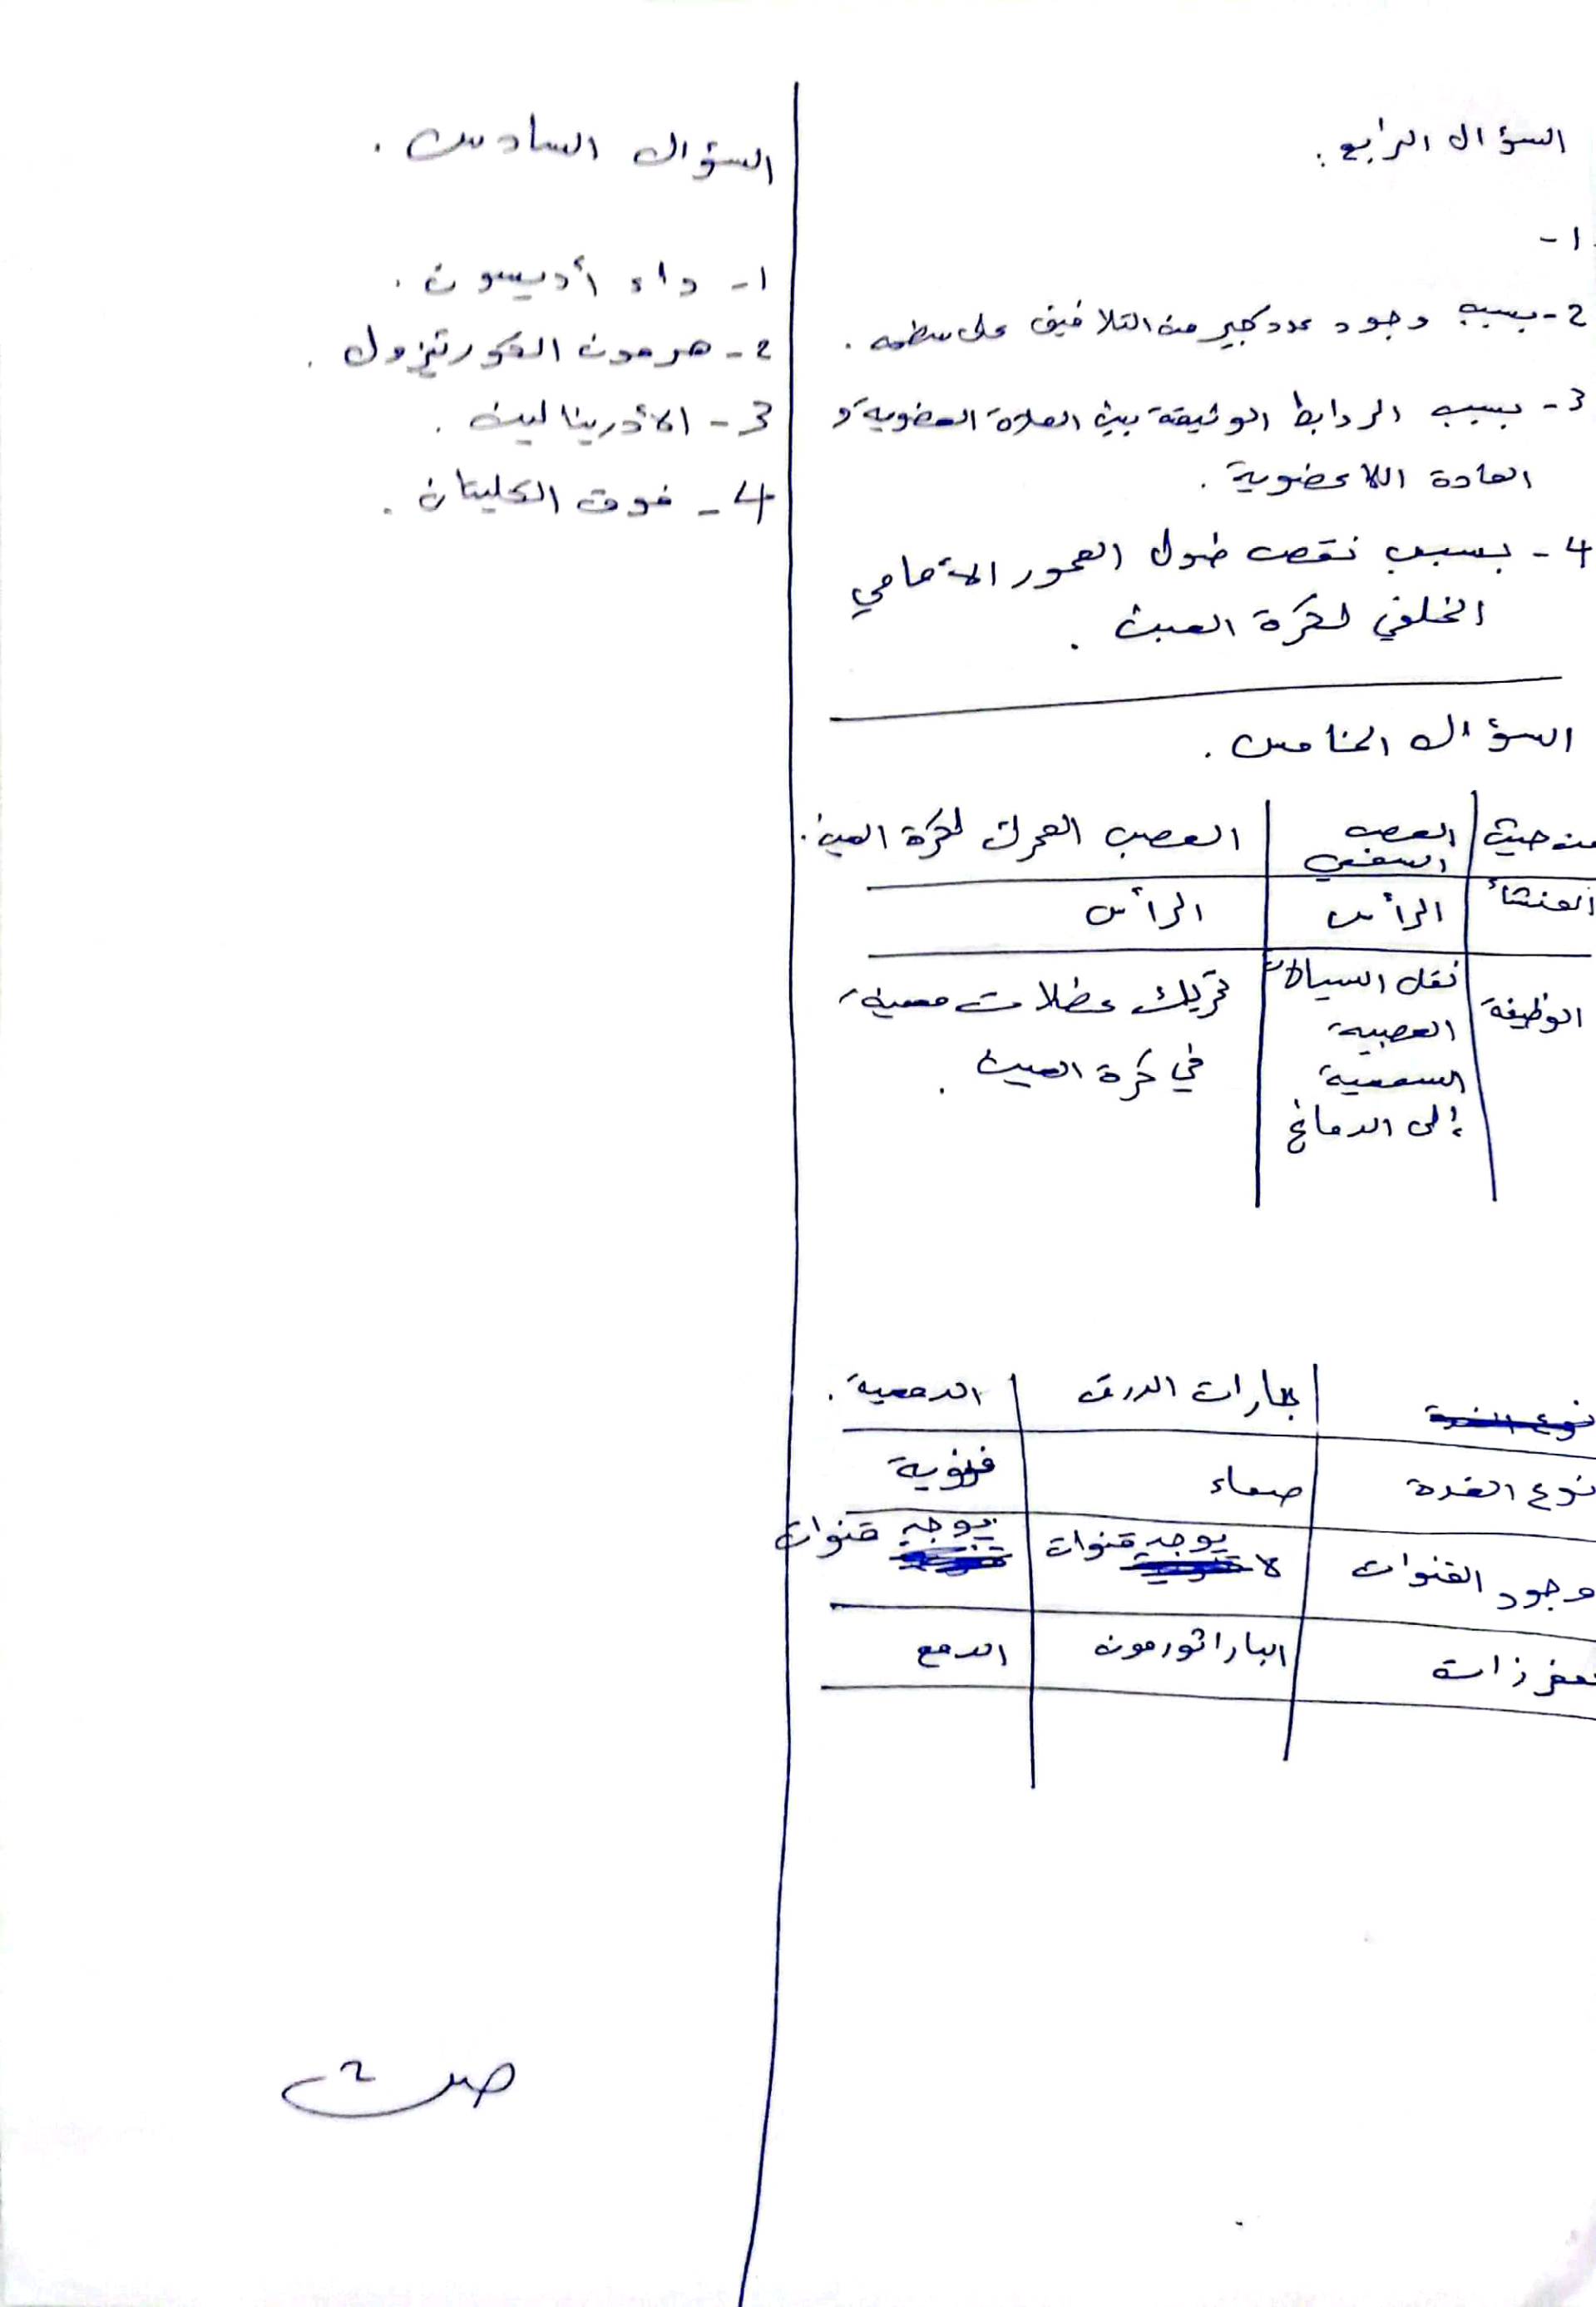 السؤال الرابع :
1-
2- بسبب وجود عدد كبير من التلافيف على سطحه .
3- بسبب الروابط الوثيقة بين المادة العضوية و
المادة اللاعضوية .
4- بسبب نقص طول المحور الأمامي
الخلفي لكرة العين .
السؤال الخامس .
من حيث | العصب السمعي | العصب المحرك لكرة العين .
المنشأ | الرأس | الرأس
الوظيفة | نقل السيالات العصبية السمعية إلى الدماغ | تحريك عضلات معينة في كرة العين .
جارات الدرق | الدمعية .
نوع الغدة | صماء | قنوية
وجود القنوات | لا يوجد قنوات | يوجد قنوات
مفرزات | الباراثورمون | الدمع
السؤال السادس .
1- داء أديسون .
2- هرمون الكورتيزول .
3- الأدرينالين .
4- فوق الكليتان .
ص ٢